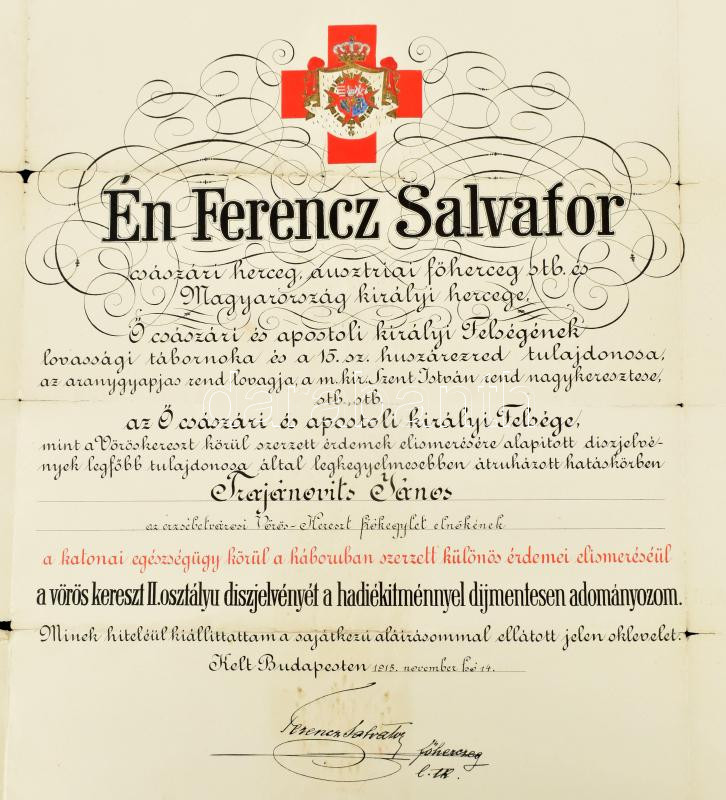 Én Ferencz Salvator
császári herceg, ausztriai főherceg stb. és
Magyarország királyi hercege,
Ő császári és apostoli királyi Felségének
lovassági tábornoka és a 15. sz. huszárezred tulajdonosa,
az aranygyapjas rend lovagja, a m. kir. Szent István rend nagykeresztese,
stb., stb.
az Ő császári és apostoli királyi Felsége,
mint a Vöröskereszt körül szerzett érdemek elismerésére alapitott diszjelvé-
nyek legfőbb tulajdonosa által legkegyelmesebben átruházott hatáskörben
Trajánovits János
az erzsébetvárosi Vörös-Kereszt fiókegylet elnökének
a katonai egészségügy körül a háboruban szerzett különös érdemei elismeréséül
a vörös kereszt II. osztályu diszjelvényét a hadiékitménnyel dijmentesen adományozom.
Minek hiteléül kiállittattam a sajátkezű aláirásommal ellátott jelen oklevelet.
Kelt Budapesten 1915. november hó 14.
Ferencz Salvator
főherczeg